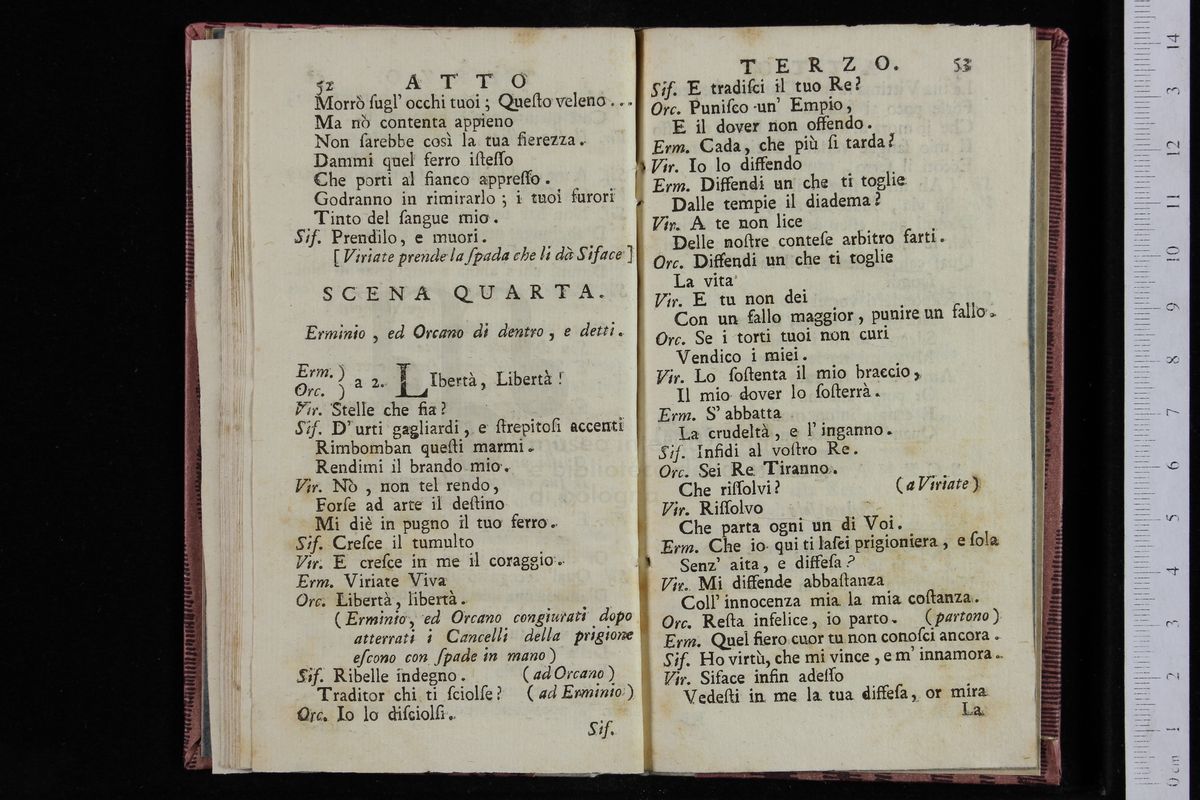 52 ATTO
Morrò ſugl' occhi tuoi; Queſto veleno...
Ma nò contenta appieno
Non ſarebbe così la tua fierezza.
Dammi quel ferro iſteſſo
Che porti al fianco appreſſo.
Godranno in rimirarlo; i tuoi furori
Tinto del ſangue mio.
Sif. Prendilo, e muori.
[Viriate prende la ſpada che li dà Siface]
SCENA QUARTA.
Erminio, ed Orcano di dentro, e detti.
Erm. )
Orc. ) a 2. LIbertà, Libertà!
Vir. Stelle che fia?
Sif. D'urti gagliardi, e ſtrepitoſi accenti
Rimbomban queſti marmi.
Rendimi il brando mio.
Vir. Nò, non tel rendo,
Forſe ad arte il deſtino
Mi diè in pugno il tuo ferro.
Sif. Creſce il tumulto
Vir. E creſce in me il coraggio.
Erm. Viriate Viva
Orc. Libertà, libertà.
(Erminio, ed Orcano congiurati dopo
atterrati i Cancelli della prigione
eſcono con ſpade in mano)
Sif. Ribelle indegno. (ad Orcano)
Traditor chi ti ſciolſe? (ad Erminio)
Orc. Io lo diſciolſi.
Sif.
TERZO. 53
Sif. E tradiſci il tuo Re?
Orc. Puniſco un' Empio,
E il dover non offendo.
Erm. Cada, che più ſi tarda?
Vir. Io lo diffendo
Erm. Diffendi un che ti toglie
Dalle tempie il diadema?
Vir. A te non lice
Delle noſtre conteſe arbitro farti.
Orc. Diffendi un che ti toglie
La vita
Vir. E tu non dei
Con un fallo maggior, punire un fallo.
Orc. Se i torti tuoi non curi
Vendico i miei.
Vir. Lo ſoſtenta il mio braccio,
Il mio dover lo ſoſterrà.
Erm. S'abbatta
La crudeltà, e l'inganno.
Sif. Infidi al voſtro Re.
Orc. Sei Re Tiranno.
Che riſſolvi? (a Viriate)
Vir. Riſſolvo
Che parta ogni un di Voi.
Erm. Che io qui ti laſci prigioniera, e ſola
Senz' aita, e diffeſa?
Vir. Mi diffende abbaſtanza
Coll' innocenza mia la mia coſtanza.
Orc. Reſta infelice, io parto. (partono)
Erm. Quel fiero cuor tu non conoſci ancora.
Sif. Ho virtù, che mi vince, e m' innamora.
Vir. Siface infin adeſſo
Vedeſti in me la tua diffeſa, or mira
La